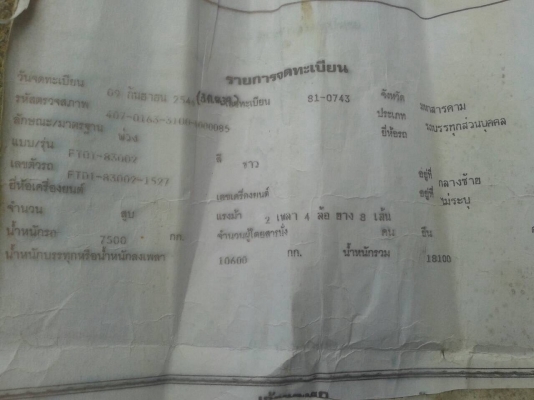 รายการจดทะเบียน
วันจดทะเบียน 09 กันยายน ทะเบียน 81-0743 จังหวัด มหาสารคาม
รหัสตรวจสภาพ ประเภท รถบรรทุกส่วนบุคคล
ลักษณะ/มาตรฐาน พ่วง ยี่ห้อรถ
แบบ/รุ่น FT01-83002 สี ขาว
เลขตัวรถ FT01-83002-1527 อยู่ที่ กลางซ้าย
ยี่ห้อเครื่องยนต์ เลขเครื่องยนต์ อยู่ที่ ไม่ระบุ
จำนวน สูบ แรงม้า 2 เพลา 4 ล้อ ยาง 8 เส้น
น้ำหนักรถ 7500 กก. จำนวนผู้โดยสารนั่ง คน ยืน
น้ำหนักบรรทุกหรือน้ำหนักลงเพลา 10600 กก. น้ำหนักรวม 18100